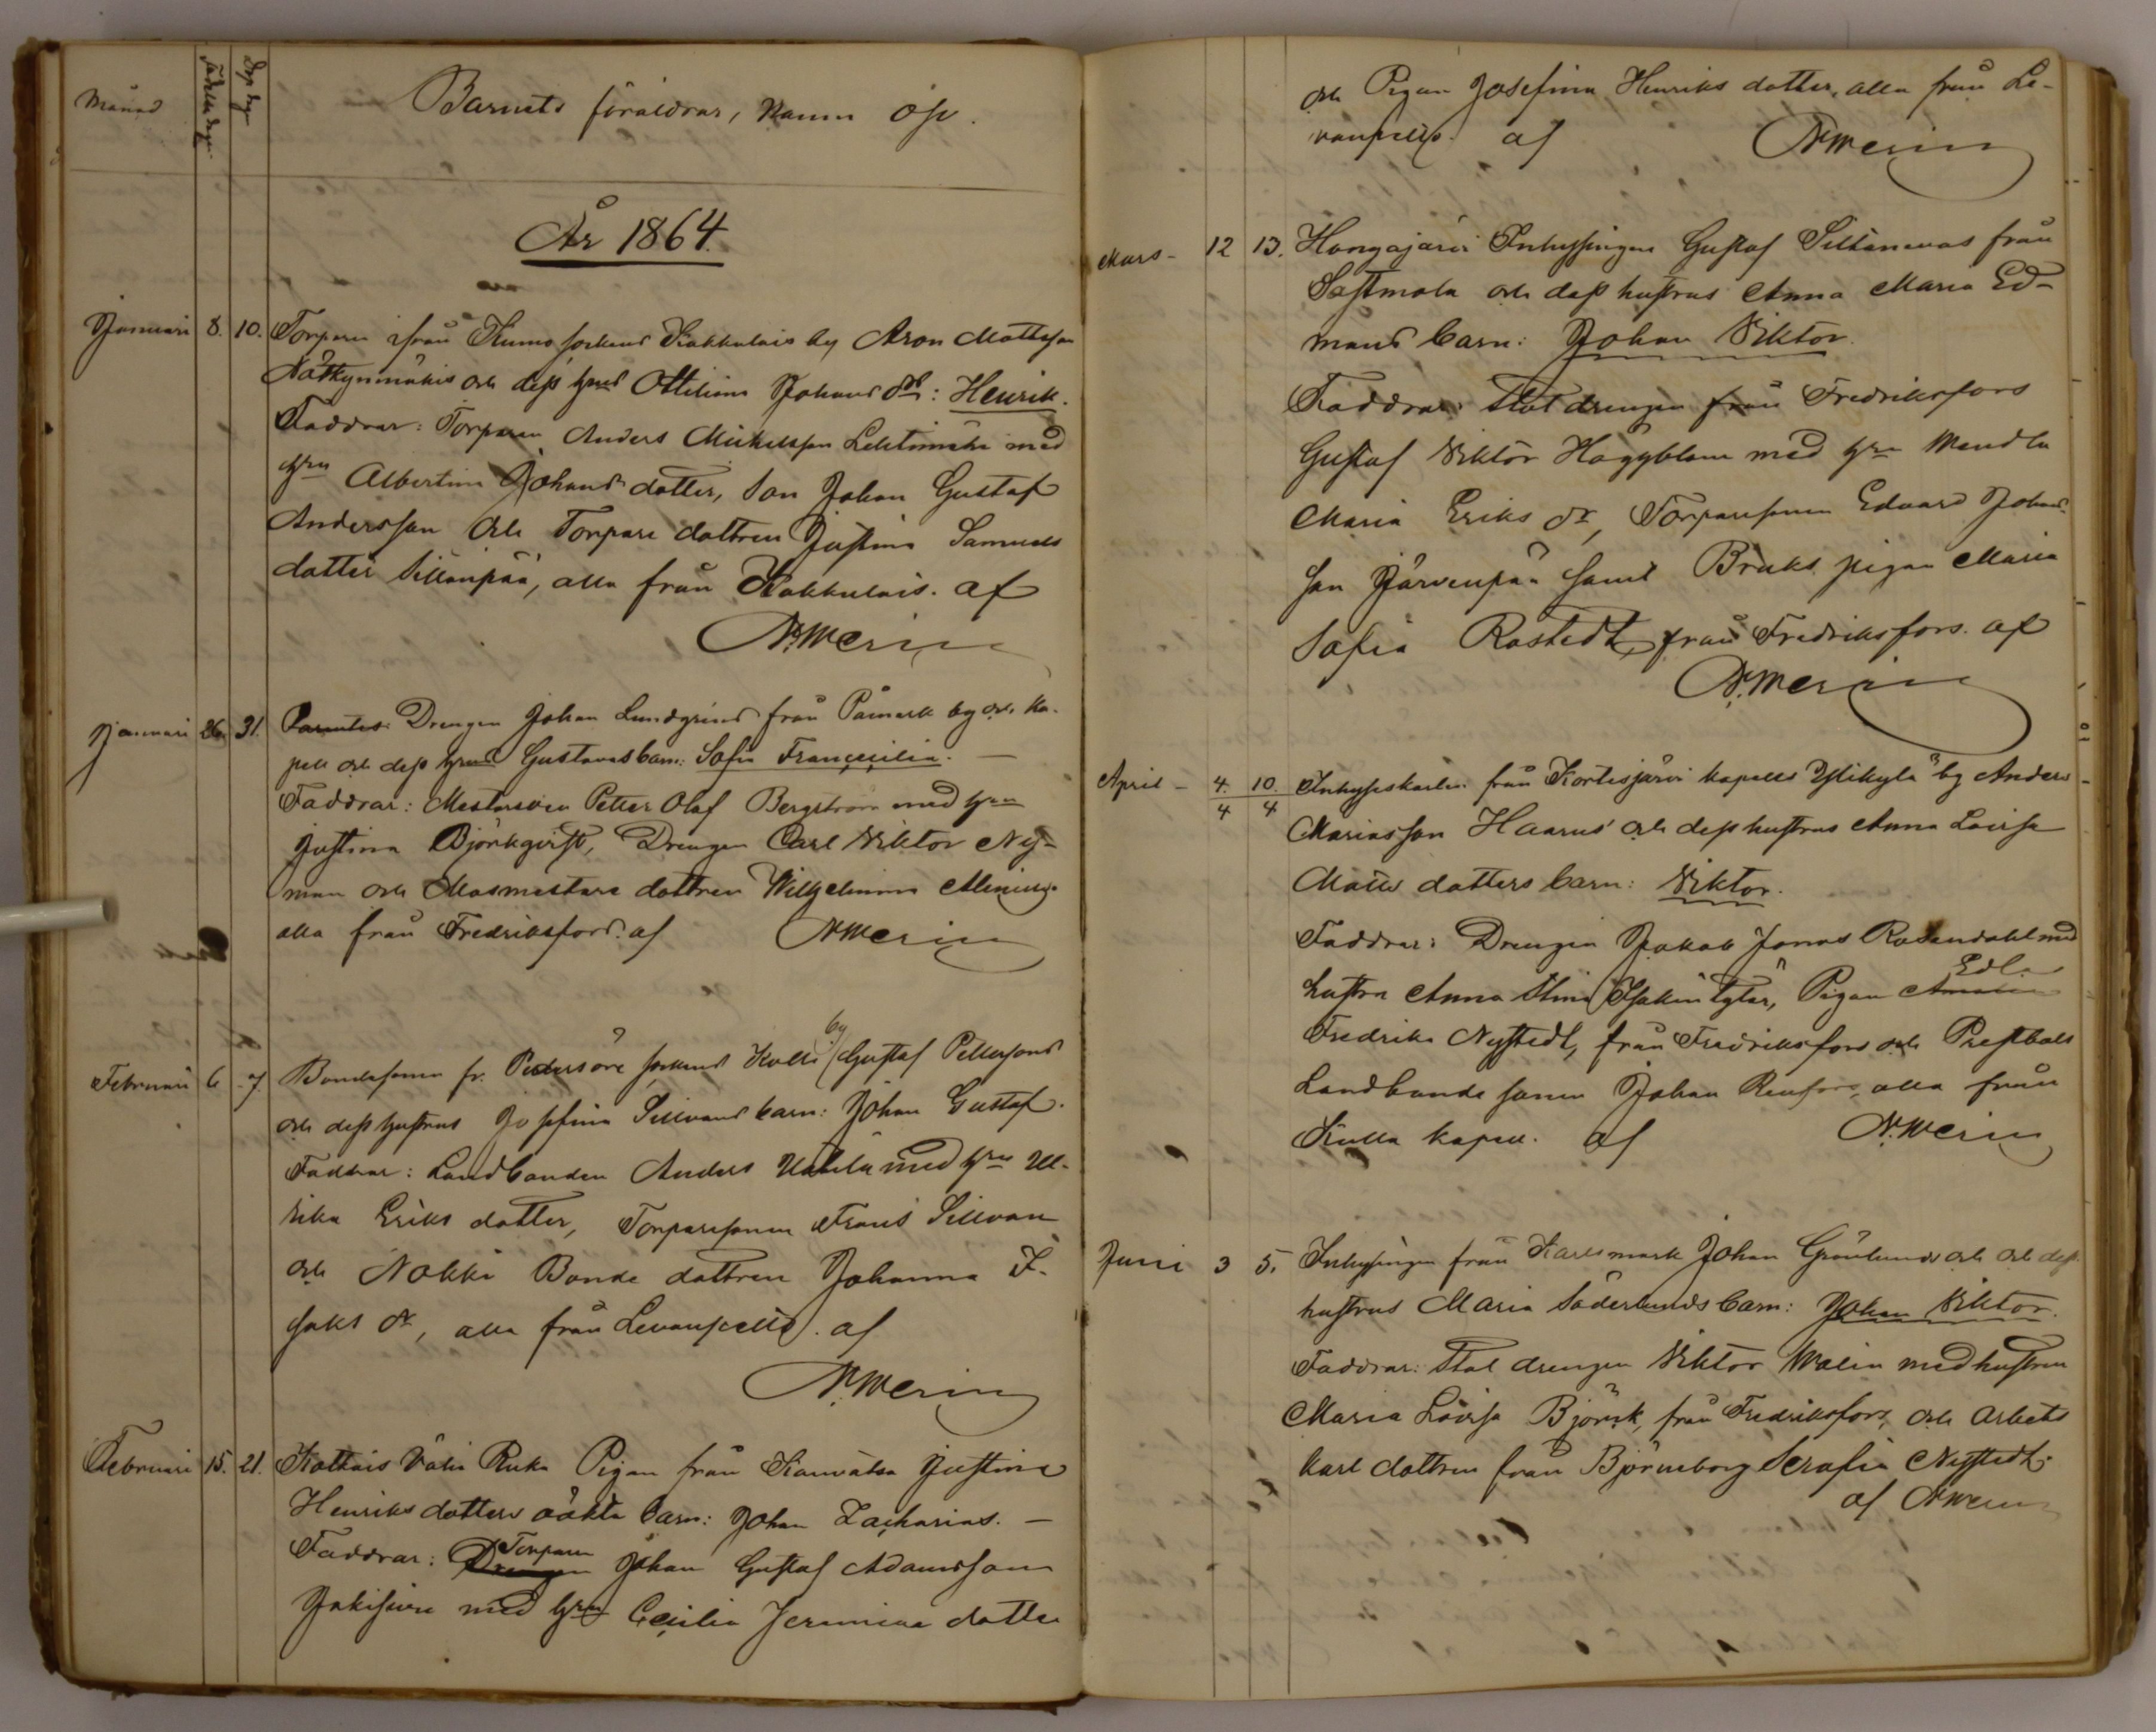 Månad Födelse dag Dop dag
Barnets föräldrar, namn osv.
År 1864.
Januari 8. 10. Torparen ifrån Kumo sockens Kakkulais by Aron Mattsson
Nätkynmäkis och dess hrus Ottiliana Johans dr: Henrik.
Faddrar: Torparen Anders Michelsson Lehtimäki med
hru Albertina Johans dotter, Son Johan Gustaf
Andersson och Torpare dottren Justina Samuels
dotter Sillanpää, alla från Kakkulais. af
N. Merin
Januari 26 31. Drengen Johan Lundgrens från Påmark by och ka-
pell och dess hrus Gustavas barn: Sofia Franscecilia. —
Faddrar: Mestersven Petter Olof Bergström med hru
Justina Björkqvist, Drengen Carl Viktor Ny-
man och Masmestare dottren Wilhelmina
alla från Fredriksfors. af N. Merin
Februari 6 7. Bondesonen fr. Pedersöre sockens Kolls by Gustaf Pettersons
och dess hustrus Josefina Sillvans barn: Johan Gustaf.
Faddrar: Landbonden Anders Uotila med hru Ul-
rika Eriks dotter, Torparesonen Frans Sillvan
och Nokki Bonde dottren Johanna I-
saks dr, alla från Levanpelto. af
N. Merin
Februari 15. 21. Pigan från Kauvatsa Justina
Henriks dotters oäkta barn: Johan Zacharias. —
Faddrar: Drengen Torparen Johan Gustaf Adamsson
med hru Cecilia Jeremiae dotter
och Pigan Josefina Henriks dotter, alla från Le-
vanpelto. af N. Merin
Mars - 12 13. Hongajärvi Inhysingen Gustaf Siltanevas från
Sastmola och dess hustrus Anna Maria Ed-
mans barn: Johan Viktor.
Faddrar: Stat drengen från Fredriksfors
Gustaf Viktor Häggblom med hru Wendla
Maria Eriks dr, Torparesonen Edvard Johans-
son Järvenpää samt Bruks pigan Maria
Sofia Rostedt, från Fredriksfors. af
N. Merin
April - 4. 10. Inhyseskarlen från Kortesjärvi kapells Ylikylä by Anders
4 4
Mariasson Haarus och dess hustrus Anna Lovisa
Matts dotters barn: Viktor.
Faddrar: Drengen Jakob Jonas Rosendahl med
hustru Anna Stina Isakin tytär, Pigan Amalia Edla
Fredrika Nystedt, från Fredriksfors och Prestbols
Landbonde sonen Johan Renfors, alla från
Kulla kapell. af N. Merin
Juni 3 5. Inhysingen från Karlsmark Johan Grönlunds och och dess
hustrus Maria Söderlunds barn: Johan Viktor.
Faddrar: Stat drengen Viktor Malin med hustrun
Maria Lovisa Björk, från Fredriksfors, och arbets
karl dottren från Björneborg Serafia Nystedt.
af N. Merin